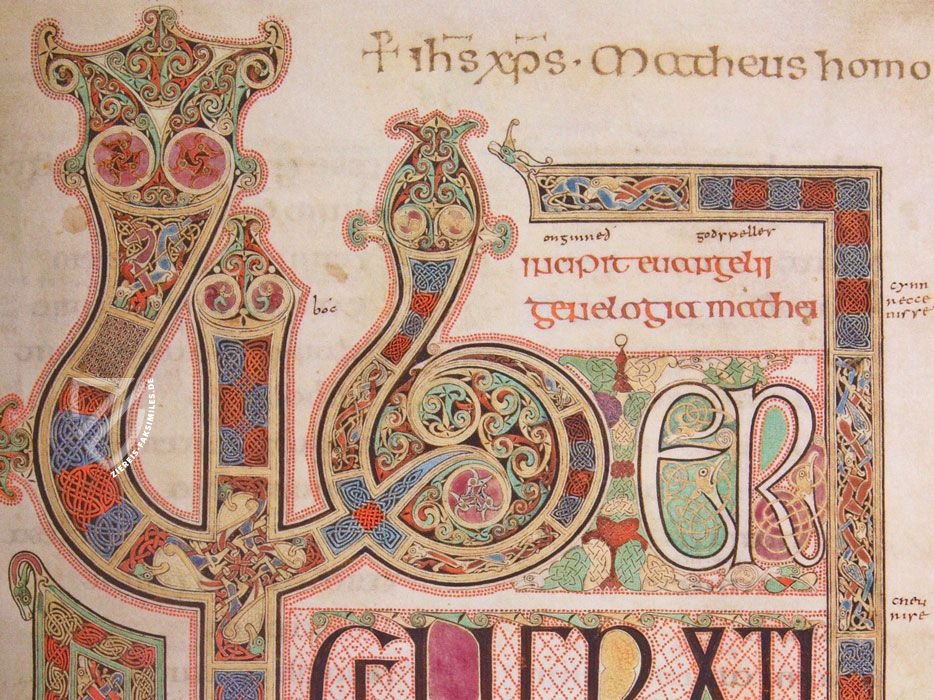 ✝ ihs xps · Matheus homo
onginneð godspelles
incipit euangelii
genelogia mathei
cynn
recce
nisse
boc
Liber
cneu
nise
GENERATI
ZIEREIS-FAKSIMILES.DE